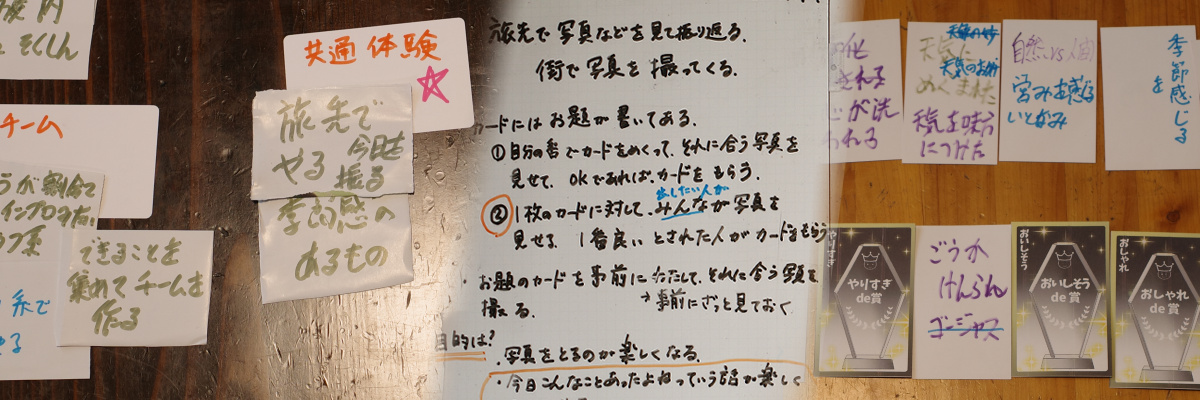 そくしん
チーム
できることを
集めてチームを
作る
共通体験
旅先で
やる 今日を
振る
季節感の
あるもの
旅先で写真などを見て振り返る.
街で写真を撮ってくる.
カードにはお題が書いてある.
①自分の番でカードをめくって、それに合う写真を
見せて、OKであれば、カードをもらう.
出したい人が
②1枚のカードに対して、みんなが写真を
見せる 1番良いとされた人がカードをもらう
・お題のカードを事前に たして、それに合う写真を
撮る.
→事前にざっと見ておく
目的は?
・写真をとるのが楽しくなる.
・今日こんなことあったよねっていう話が楽しく
が洗
われる
天気に
天気の妙
天気のお計
めぐまれた
天気を味方
につけた
自然 vs 人間
営みを感じる
いとなみ
季節感じる
を
やりすぎ
やりすぎ
de賞
ごうか
けんらん
ゴージャス
おいしそう
おいしそう
de賞
おしゃれ
おしゃれ
de賞